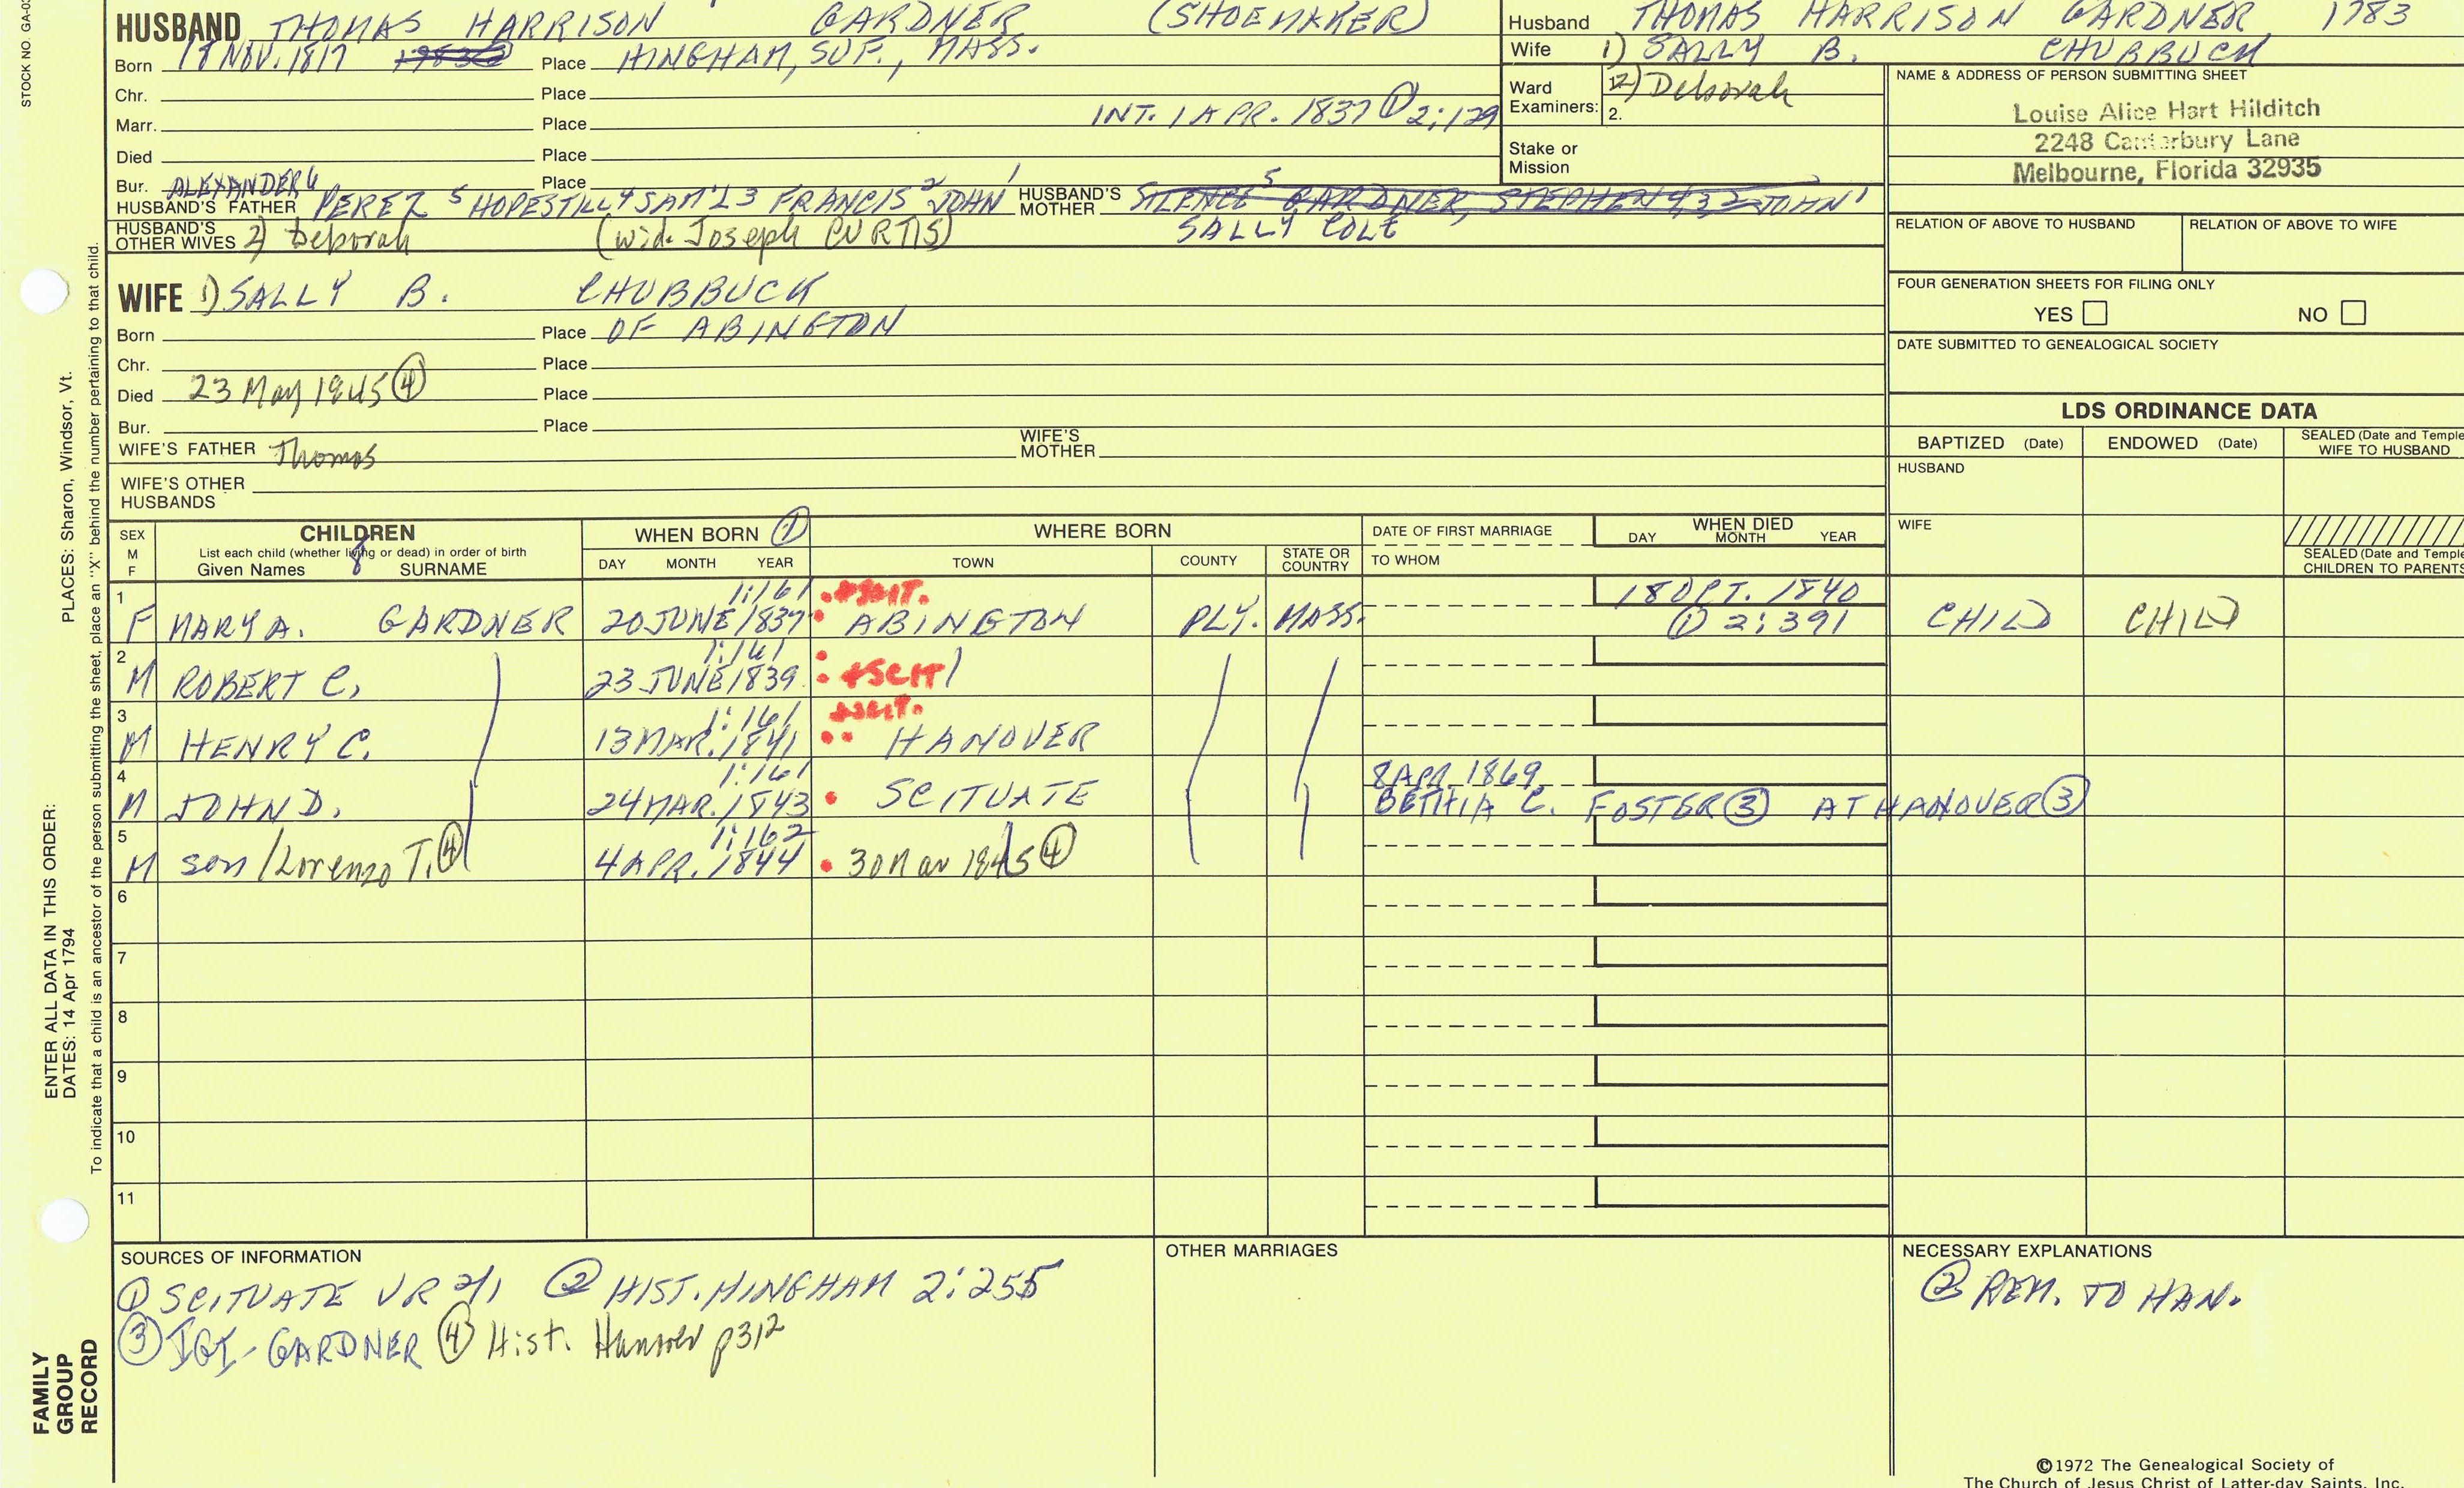 STOCK NO. GA-0
HUSBAND THOMAS HARRISON GARDNER (SHOEMAKER)
Born 18 NOV. 1817 Place HINGHAM, SUF., MASS.
Chr. Place
Marr. Place INT. 1 APR. 1837 ① 2:129
Died Place
Bur. Place
HUSBAND'S FATHER ALEXANDER 6 PEREZ 5 HOPESTILL 4 SAM'L 3 FRANCIS 2 JOHN 1
HUSBAND'S MOTHER SILENCE 5 GARDNER, STEPHEN 4 3 2 JOHN 1
SALLY COLE
HUSBAND'S OTHER WIVES 2) Deborah (wid. Joseph CURTIS)
Husband THOMAS HARRISON GARDNER 1783
Wife 1) SALLY B. CHUBBUCK
Ward Examiners: 2) Deborah
2.
Stake or Mission
NAME & ADDRESS OF PERSON SUBMITTING SHEET
Louise Alice Hart Hilditch
2248 Canterbury Lane
Melbourne, Florida 32935
RELATION OF ABOVE TO HUSBAND RELATION OF ABOVE TO WIFE
FOUR GENERATION SHEETS FOR FILING ONLY
YES NO
DATE SUBMITTED TO GENEALOGICAL SOCIETY
WIFE 1) SALLY B. CHUBBUCK
Born Place OF ABINGTON
Chr. Place
Died 23 May 1845 ④ Place
Bur. Place
WIFE'S FATHER Thomas WIFE'S MOTHER
WIFE'S OTHER HUSBANDS
LDS ORDINANCE DATA
BAPTIZED (Date) ENDOWED (Date) SEALED (Date and Temple WIFE TO HUSBAND
HUSBAND
WIFE
SEALED (Date and Temple CHILDREN TO PARENTS
SEX M F CHILDREN WHEN BORN ① WHERE BORN DATE OF FIRST MARRIAGE WHEN DIED
List each child (whether living or dead) in order of birth
Given Names SURNAME DAY MONTH YEAR TOWN COUNTY STATE OR COUNTRY TO WHOM DAY MONTH YEAR
1 1:161 SCIT. 18 OCT. 1840
F MARY A. GARDNER 20 JUNE 1837 ABINGTON PLY. MASS. ① 2:391 CHILD CHILD
2 1:161
M ROBERT C. 23 JUNE 1839 +SCIT
3 1:161 +SCIT.
M HENRY C. 13 MAR. 1841 HANOVER
4 1:161 8 APR. 1869
M JOHN D. 24 MAR. 1843 SCITUATE BETHIA C. FOSTER ③ AT HANOVER ③
5 1:162
M son/Lorenzo T. ④ 4 APR. 1844 30 Mar 1845 ④
6
7
8
9
10
11
SOURCES OF INFORMATION
① SCITUATE VR 2/1 ② HIST. HINGHAM 2:255
③ IGI-GARDNER ④ Hist. Hanover p312
OTHER MARRIAGES
NECESSARY EXPLANATIONS
② REM. TO HAN.
©1972 The Genealogical Society of
The Church of Jesus Christ of Latter-day Saints, Inc.
PLACES: Sharon, Windsor, Vt.
ENTER ALL DATA IN THIS ORDER:
DATES: 14 Apr 1794
To indicate that a child is an ancestor of the person submitting the sheet, place an "X" behind the number pertaining to that child.
FAMILY
GROUP
RECORD